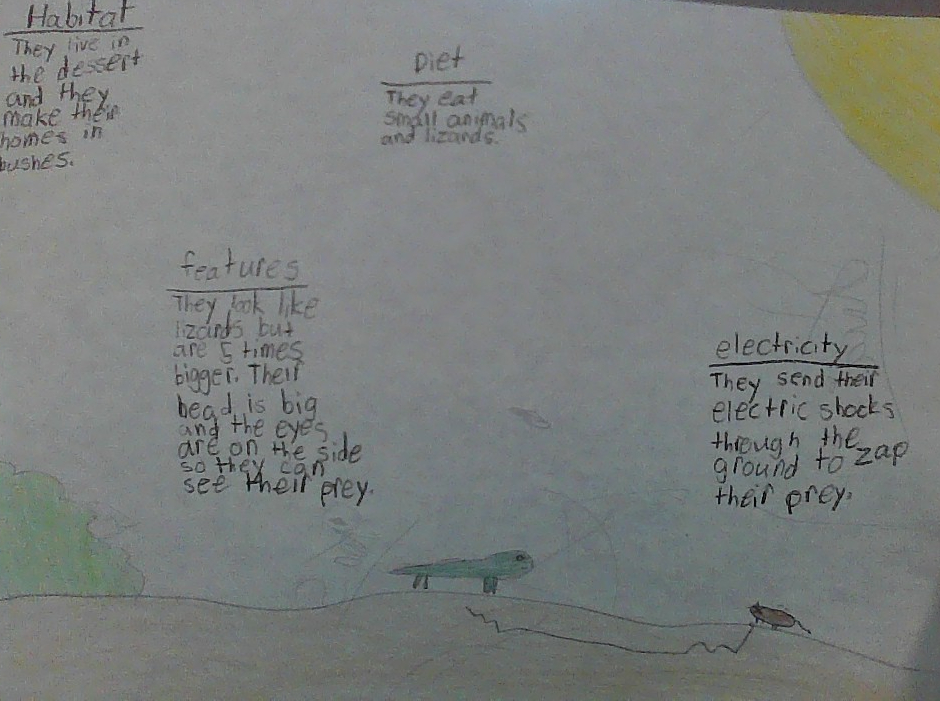 Habitat
They live in
the dessert
and they
make their
homes in
bushes.
Diet
They eat
small animals
and lizards.
features
They look like
lizards but
are 5 times
bigger. Their
head is big
and the eyes
are on the side
so they can
see their prey.
electricity
They send their
electric shocks
through the
ground to zap
their prey.